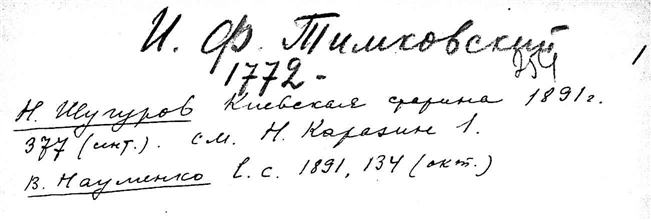 И. Ф. Тимковский
1772 -
754
1
Н. Шугуров Киевская старина 1891 г.
377 (инт.). см. Н. Каразин 1.
В. Науменко 1. с. 1891, 134 (окт.)